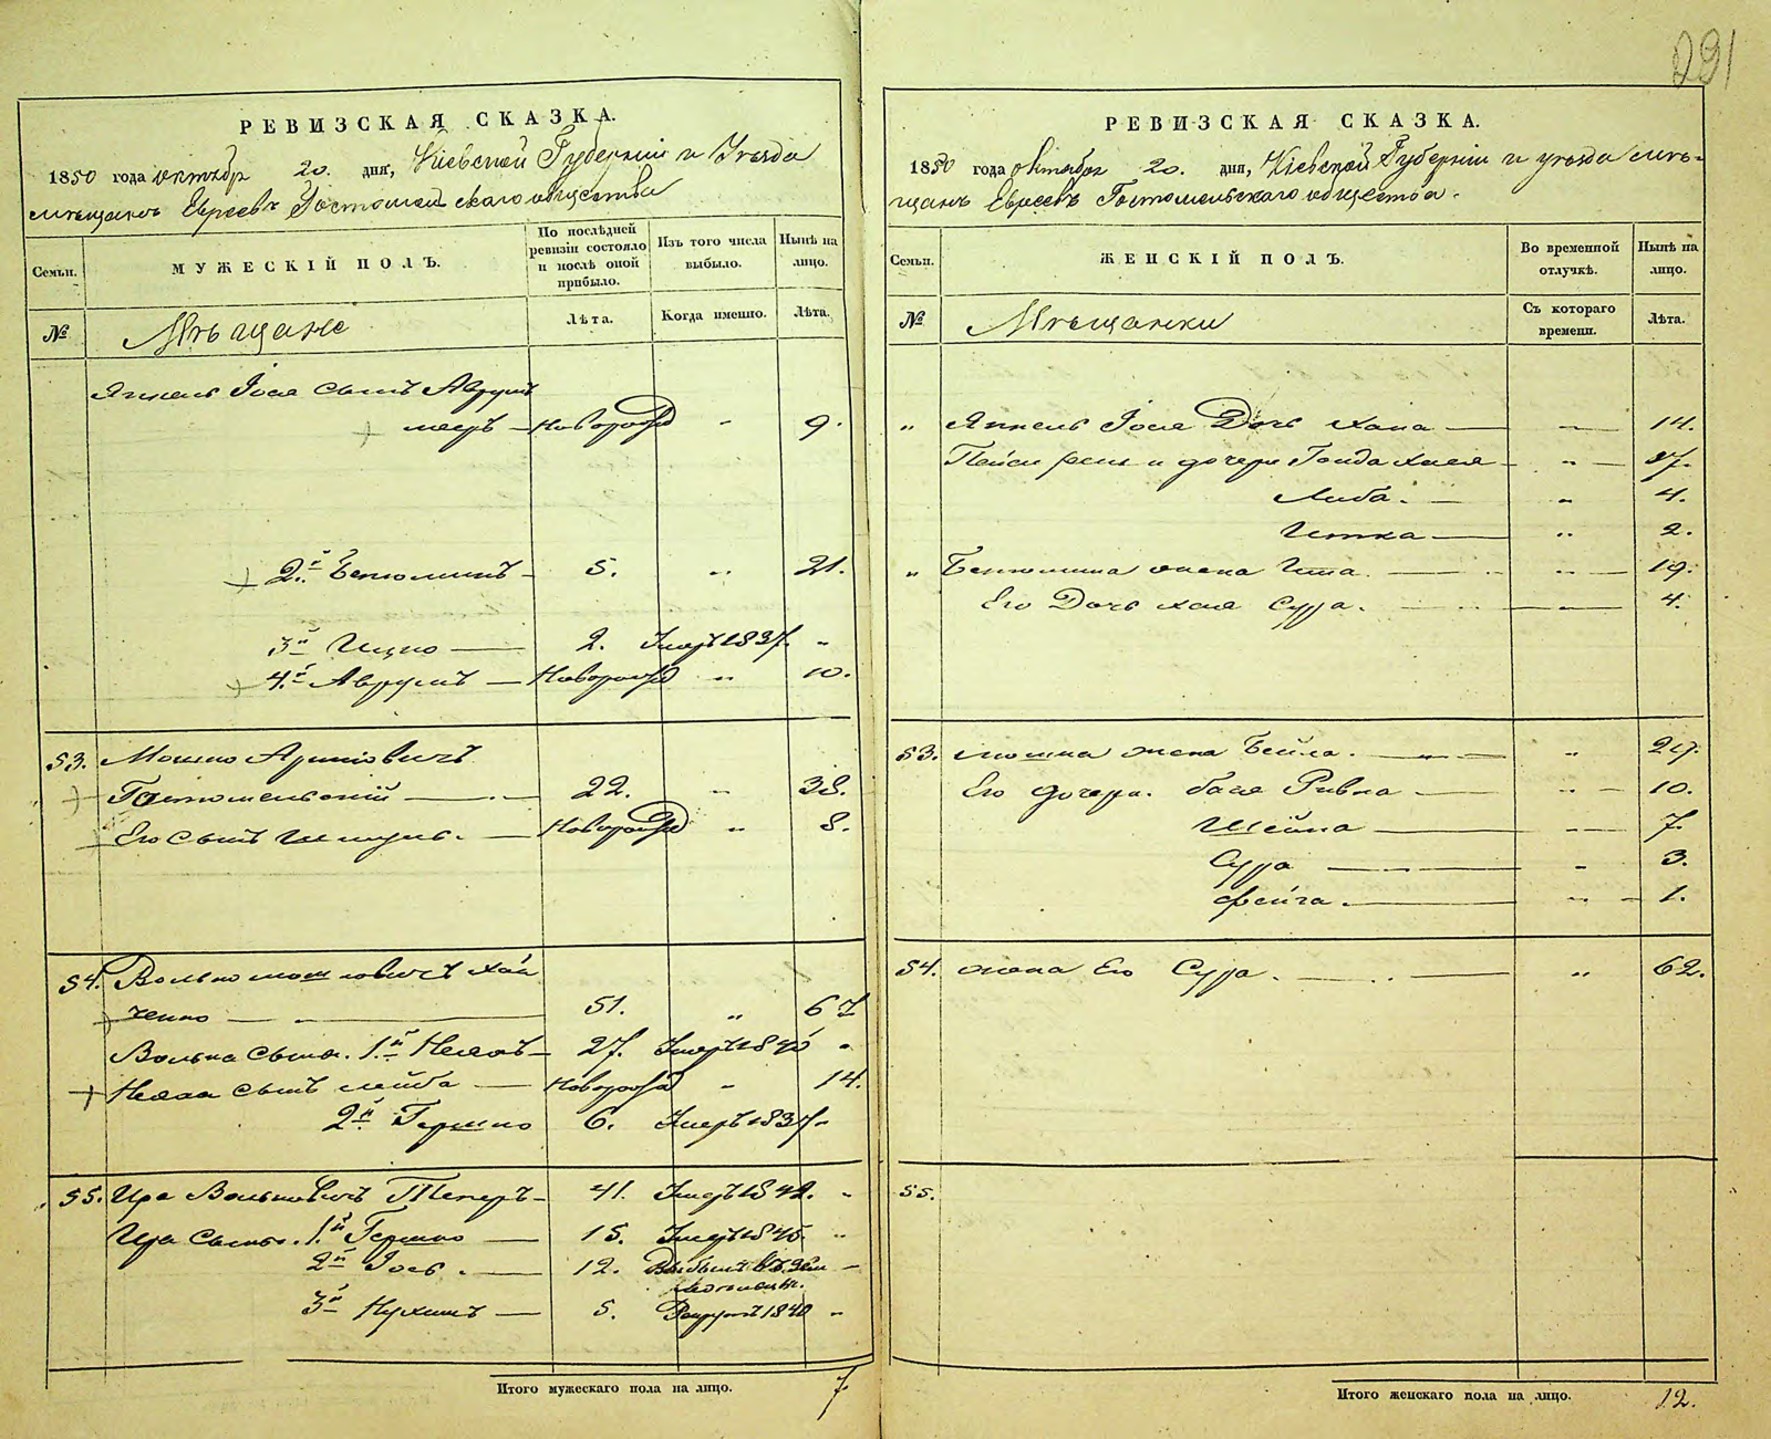 291
РЕВИЗСКАЯ СКАЗКА.
1850 года октябр 20. дня, Кіевской Губерніи и Уезда
мещанъ Евреевъ Гостомельскаго общества
Семьи.
МУЖЕСКІЙ ПОЛЪ.
По послѣдней ревизіи состояло и послѣ оной прибыло.
Изъ того числа выбыло.
Нынѣ на лицо.
№
Мѣщане
Лѣта.
Когда именно.
Лѣта.
Янкель Іося сынъ Аврум
мееръ — Новорожд „ 9.
2й Беньоминъ — 5. „ 21.
3й Ицко — 2. Умеръ 1837. „
4й Аврумъ — Новорожд „ 10.
53. Мошко Ариіовичъ
Гостомельскій — 22. „ 38.
Его сынъ Шмуль. — Новорожд „ 8.
54. Волько Мошковичъ Хай
ченко — 51. „ 67
Волька сыны. 1й — 27. Умеръ 1840 „
сынъ Лейба — Новорожд „ 14.
2й Гершко 6. Умеръ 1837 „
55. Ира Вольковичъ — 41. Умеръ 1842. „
Ира сыны. 1й Гершко — 15. Умеръ 1845. „
2й Іось. — 12. Выбылъ въ —
3й Нухимъ — 5. Рекрутъ 1840 „
Итого мужескаго пола на лицо. 7
РЕВИЗСКАЯ СКАЗКА.
1850 года октября 20. дня, Кіевской Губерніи и уезда меѣ-
щанъ Евреевъ Гостомельскаго общества.
Семьи.
ЖЕНСКІЙ ПОЛЪ.
Во временной отлучкѣ.
Нынѣ на лицо.
№
Мѣщанки
Съ котораго времени.
Лѣта.
„ Янкель Іося Дочь Хана — — 14.
Пейси жена и дочери Голда Хася — „ — 27.
Либа. — „ 4.
Итка — „ 2.
„ Беньомина жена Ита. — „ — 19.
Его Дочь Хася Сура. — — 4.
53. Мошка жена Бейла. — „ 29.
Его дочери. Бася Ривка — „ — 10.
Шейна — — 7.
Сура — „ 3.
Фейга. — „ — 1.
54. жена Его Сура. — „ 62.
55.
Итого женскаго пола на лицо. 12.